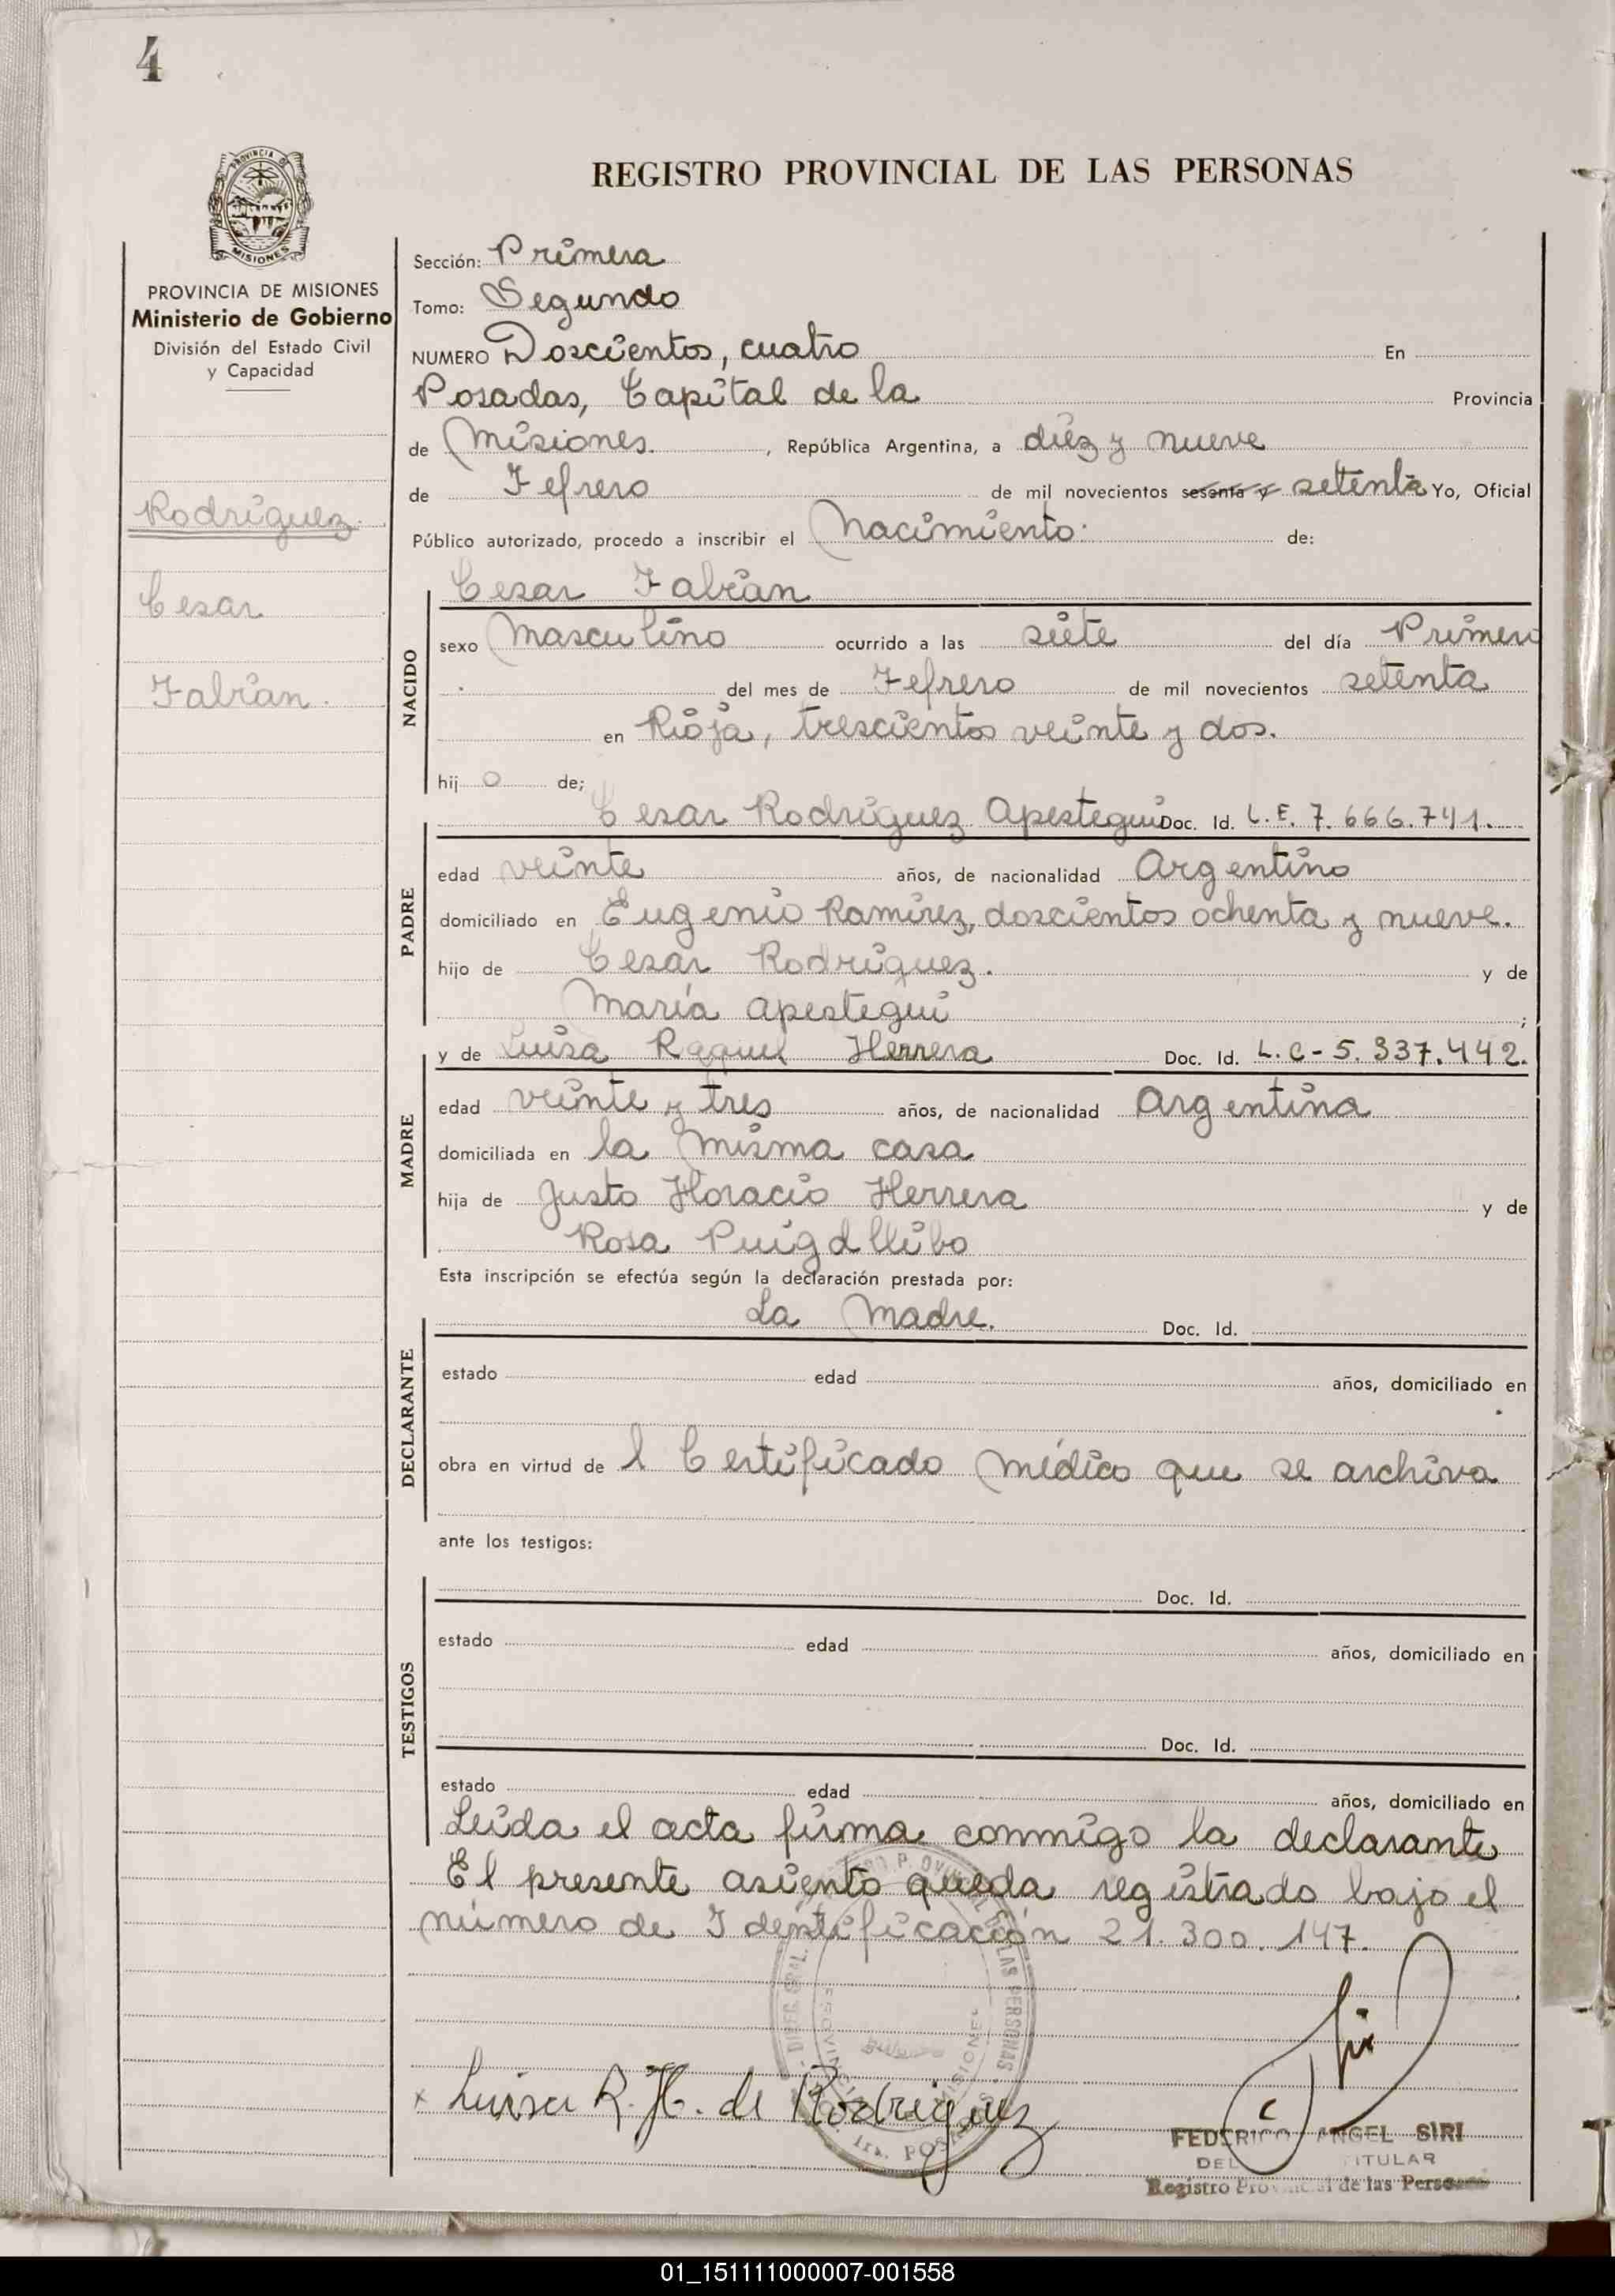 4
PROVINCIA DE
MISIONES
REGISTRO PROVINCIAL DE LAS PERSONAS
PROVINCIA DE MISIONES
Ministerio de Gobierno
División del Estado Civil
y Capacidad
Rodríguez.
Cesar
Fabián.
Sección: Primera
Tomo: Segundo
NUMERO Doscientos, cuatro En
Posadas, Capital de la Provincia
de Misiones. , República Argentina, a diez y nueve
de Febrero de mil novecientos sesenta y setenta Yo, Oficial
Público autorizado, procedo a inscribir el Nacimiento: de:
NACIDO
Cesar Fabián
sexo Masculino ocurrido a las siete del día Primero
del mes de Febrero de mil novecientos setenta
en Rioja, trescientos veinte y dos.
hij o de;
PADRE
Cesar Rodríguez Apestegui Doc. Id. L.E. 7.666.741.
edad veinte años, de nacionalidad Argentino
domiciliado en Eugenio Ramirez, doscientos ochenta y nueve.
hijo de Cesar Rodríguez. y de
María Apestegui ;
MADRE
y de Luisa Raquel Herrera Doc. Id. L.C-5.337.442.
edad veinte y tres años, de nacionalidad Argentina
domiciliada en la misma casa
hija de Justo Horacio Herrera y de
Rosa Puigdllibo
Esta inscripción se efectúa según la declaración prestada por:
DECLARANTE
La Madre. Doc. Id.
estado edad años, domiciliado en
obra en virtud de l Certificado médico que se archiva
ante los testigos:
TESTIGOS
Doc. Id.
estado edad años, domiciliado en
Doc. Id.
estado edad años, domiciliado en
Leida el acta firma conmigo la declarante
El presente asiento queda registrado bajo el
número de Identificación 21.300.147.
x Luisa R. H. de Rodriguez
FEDERICO ANGEL SIRI
TITULAR
Registro Provincial de las Personas
01_151111000007-001558